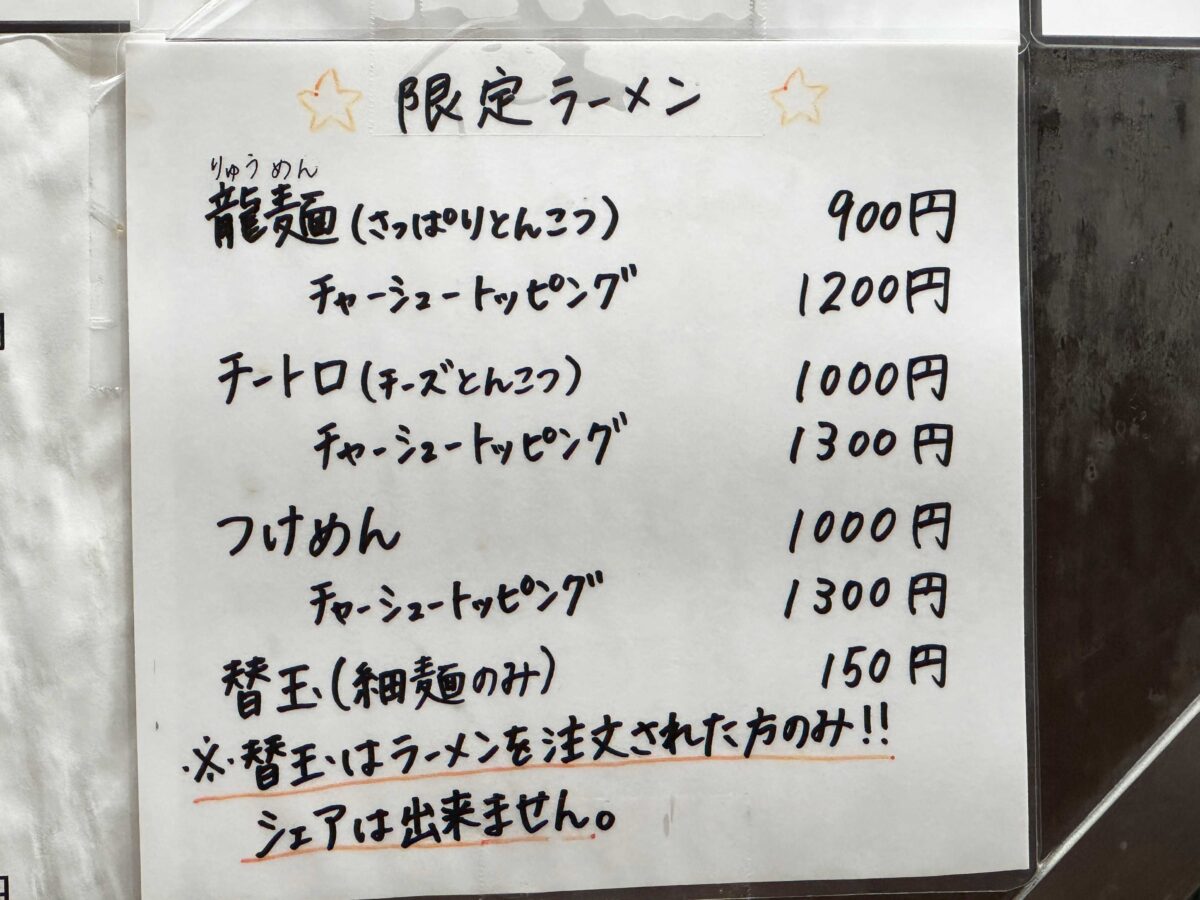 限定ラーメン
りゅうめん
龍麺(さっぱりとんこつ) 900円
チャーシュートッピング 1200円
チートロ(チーズとんこつ) 1000円
チャーシュートッピング 1300円
つけめん 1000円
チャーシュートッピング 1300円
替玉(細麺のみ) 150円
※替玉はラーメンを注文された方のみ!!
シェアは出来ません。